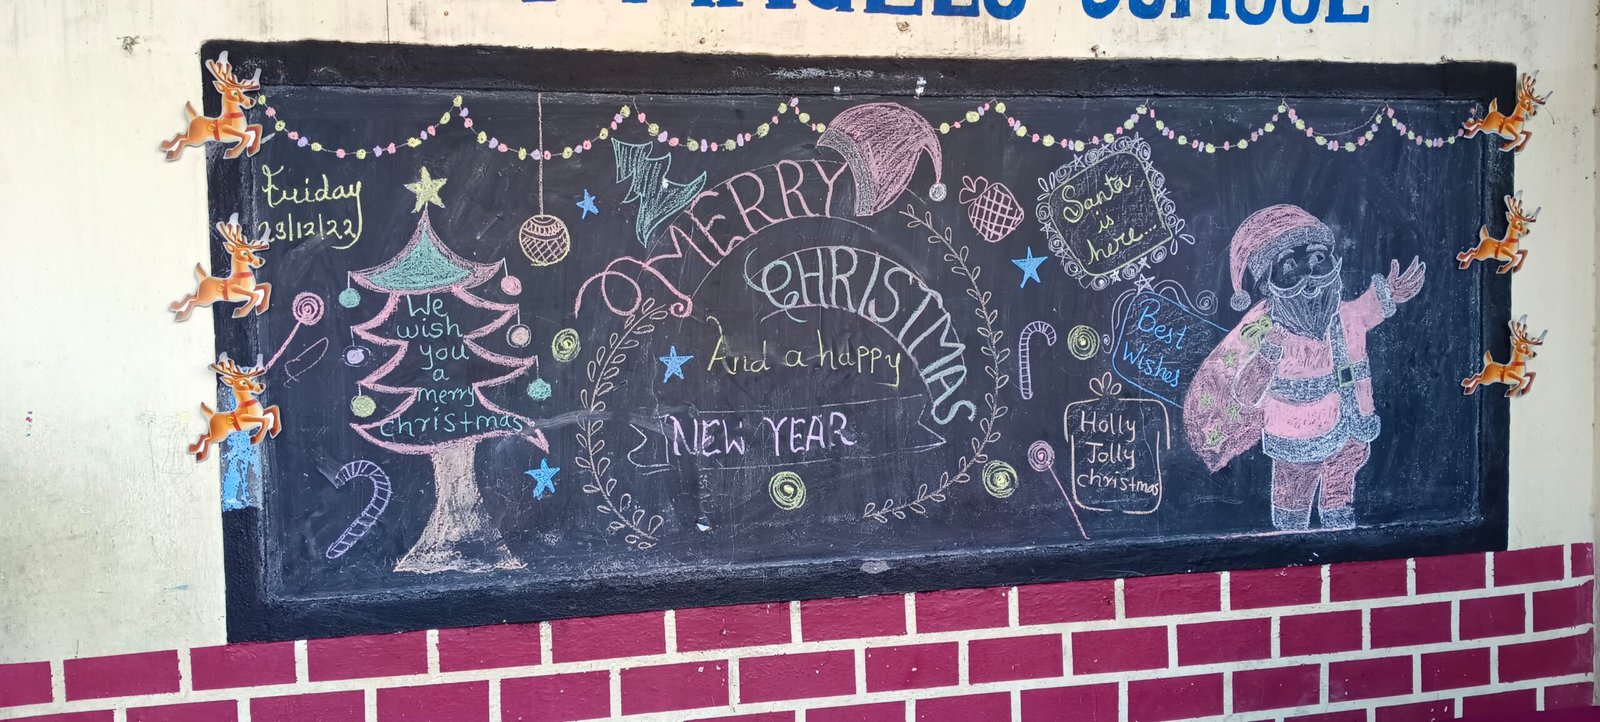 ANGELS SCHOOL
Friday
23/12/22
We
wish
you
a
merry
christmas
MERRY
CHRISTMAS
And a happy
NEW YEAR
Santa
is
here...
Best
Wishes
Holly
Jolly
christmas